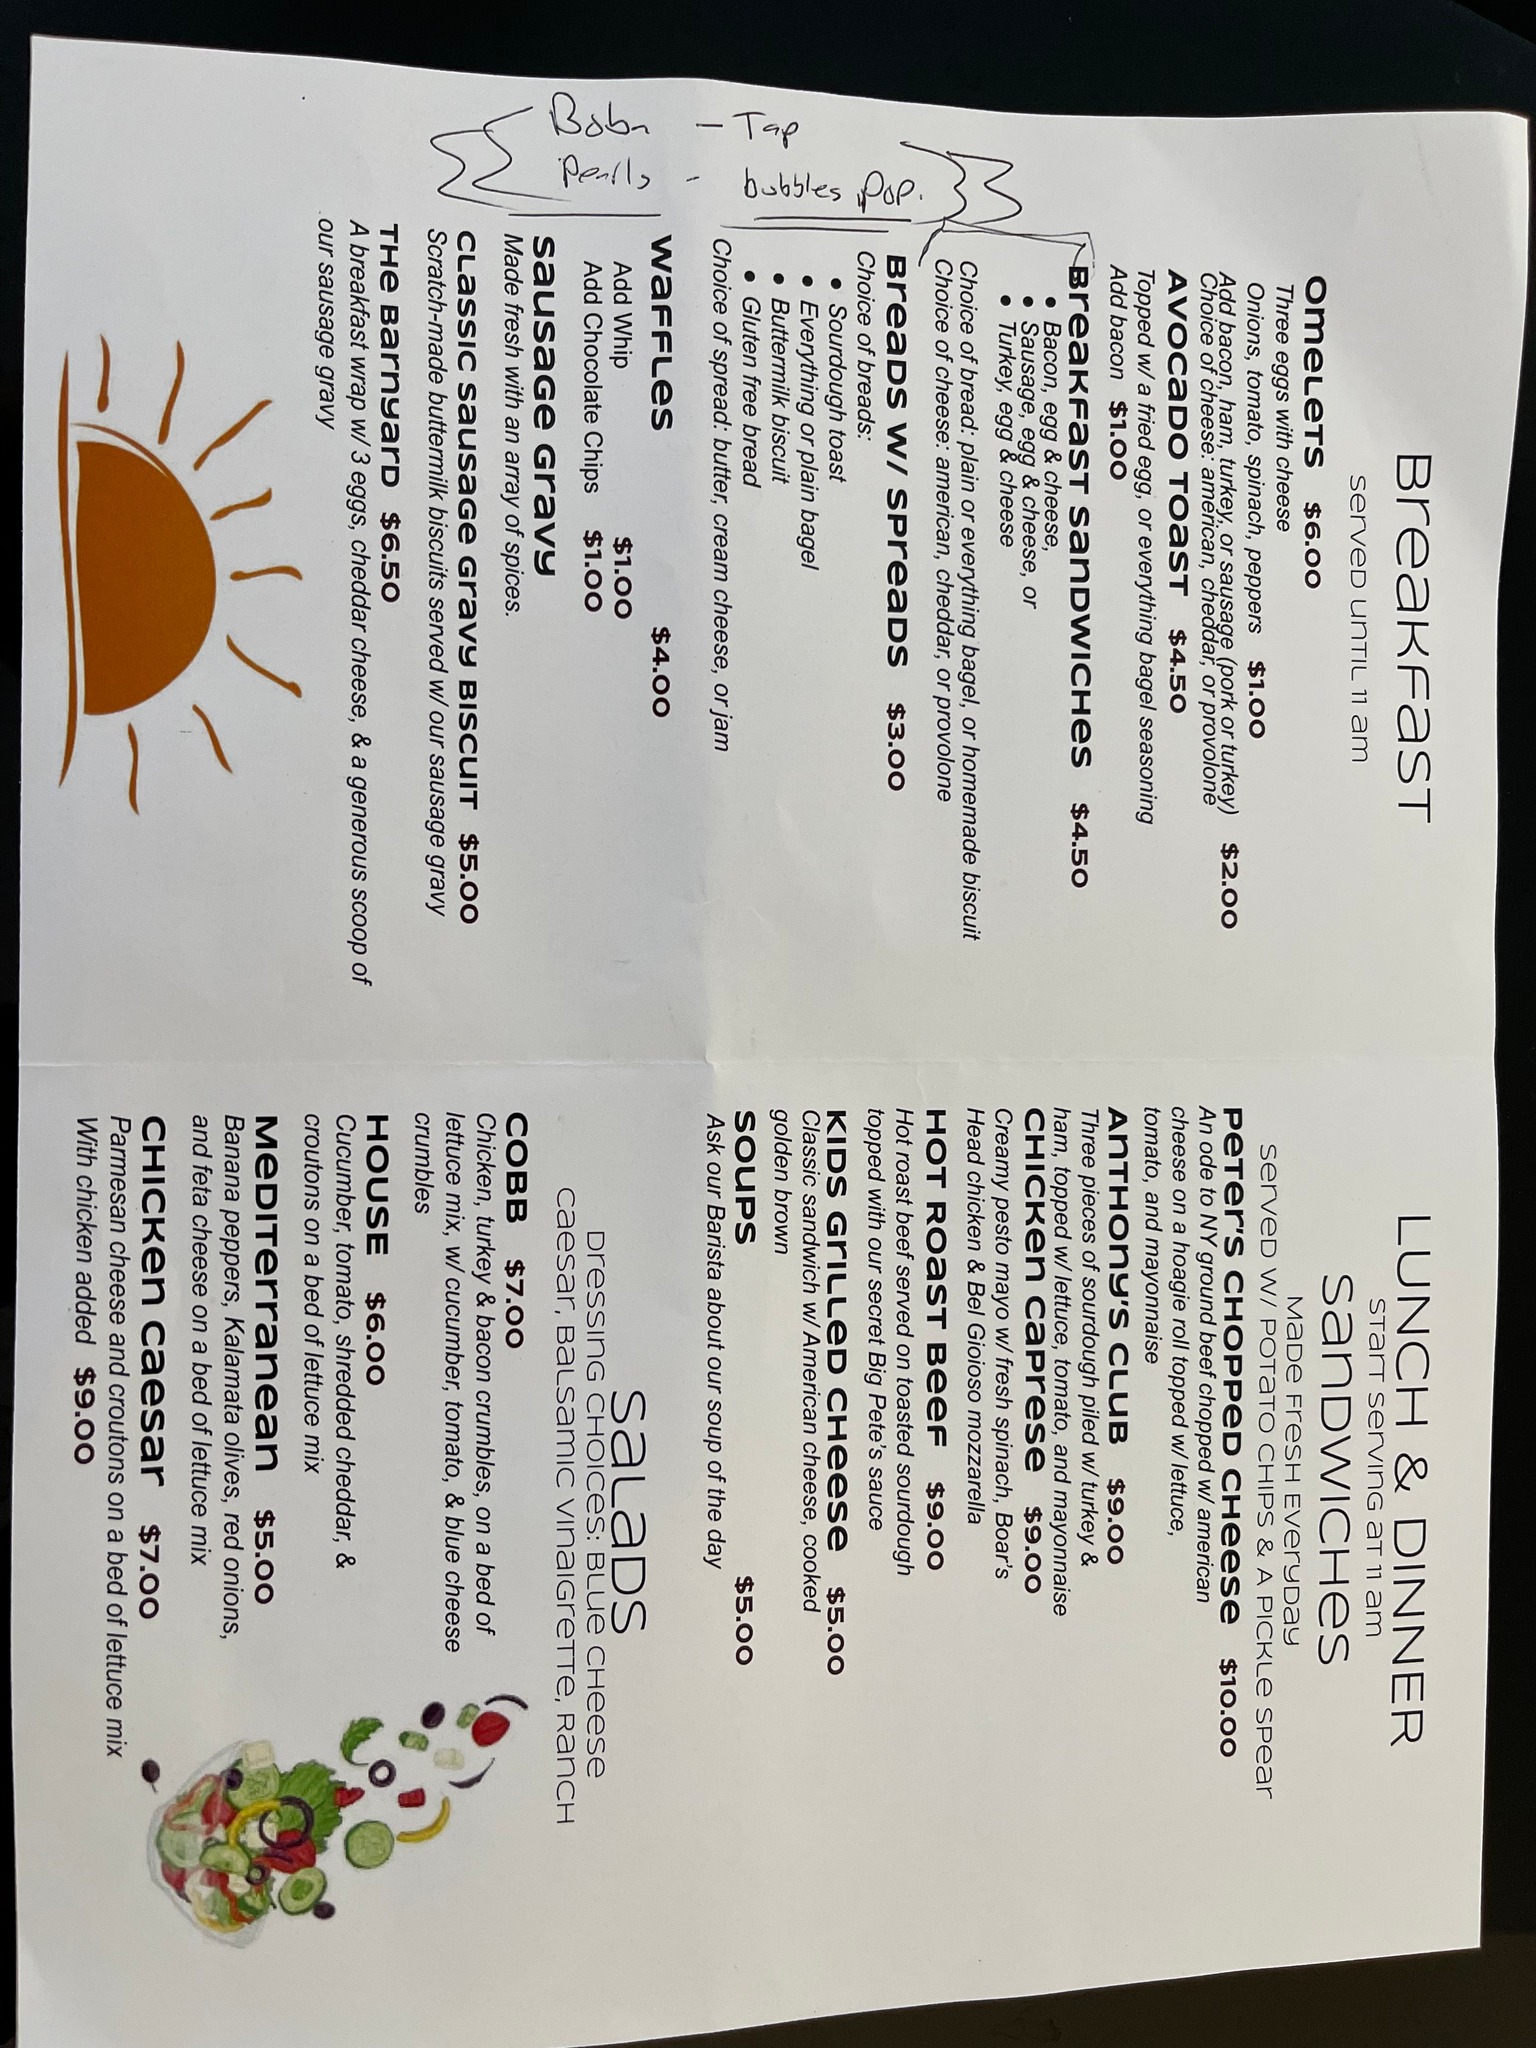 Breakfast
served until 11 am
Omelets $6.00
Three eggs with cheese
Onions, tomato, spinach, peppers $1.00
Add bacon, ham, turkey, or sausage (pork or turkey) $2.00
Choice of cheese: american, cheddar, or provolone
Avocado Toast $4.50
Topped w/ a fried egg, or everything bagel seasoning
Add bacon $1.00
Breakfast Sandwiches $4.50
• Bacon, egg & cheese,
• Sausage, egg & cheese, or
• Turkey, egg & cheese
Choice of bread: plain or everything bagel, or homemade biscuit
Choice of cheese: american, cheddar, or provolone
Breads w/ Spreads $3.00
Choice of breads:
• Sourdough toast
• Everything or plain bagel
• Buttermilk biscuit
• Gluten free bread
Choice of spread: butter, cream cheese, or jam
Waffles $4.00
Add Whip $1.00
Add Chocolate Chips $1.00
Sausage Gravy
Made fresh with an array of spices.
Classic Sausage Gravy Biscuit $5.00
Scratch-made buttermilk biscuits served w/ our sausage gravy
The Barnyard $6.50
A breakfast wrap w/ 3 eggs, cheddar cheese, & a generous scoop of
our sausage gravy
Boba - Tap
Pearls - bubbles pop.
LUNCH & DINNER
Start serving at 11 am
Sandwiches
Made Fresh Everyday
Served w/ Potato Chips & a Pickle Spear
Peter's Chopped Cheese $10.00
An ode to NY ground beef chopped w/ american
cheese on a hoagie roll topped w/ lettuce,
tomato, and mayonnaise
Anthony's Club $9.00
Three pieces of sourdough piled w/ turkey &
ham, topped w/ lettuce, tomato, and mayonnaise
Chicken Caprese $9.00
Creamy pesto mayo w/ fresh spinach, Boar's
Head chicken & Bel Gioioso mozzarella
Hot Roast Beef $9.00
Hot roast beef served on toasted sourdough
topped with our secret Big Pete's sauce
Kids Grilled Cheese $5.00
Classic sandwich w/ American cheese, cooked
golden brown
Soups $5.00
Ask our Barista about our soup of the day
Salads
Dressing Choices: Blue Cheese
Caesar, Balsamic Vinaigrette, Ranch
Cobb $7.00
Chicken, turkey & bacon crumbles, on a bed of
lettuce mix, w/ cucumber, tomato, & blue cheese
crumbles
House $6.00
Cucumber, tomato, shredded cheddar, &
croutons on a bed of lettuce mix
Mediterranean $5.00
Banana peppers, Kalamata olives, red onions,
and feta cheese on a bed of lettuce mix
Chicken Caesar $7.00
Parmesan cheese and croutons on a bed of lettuce mix
With chicken added $9.00